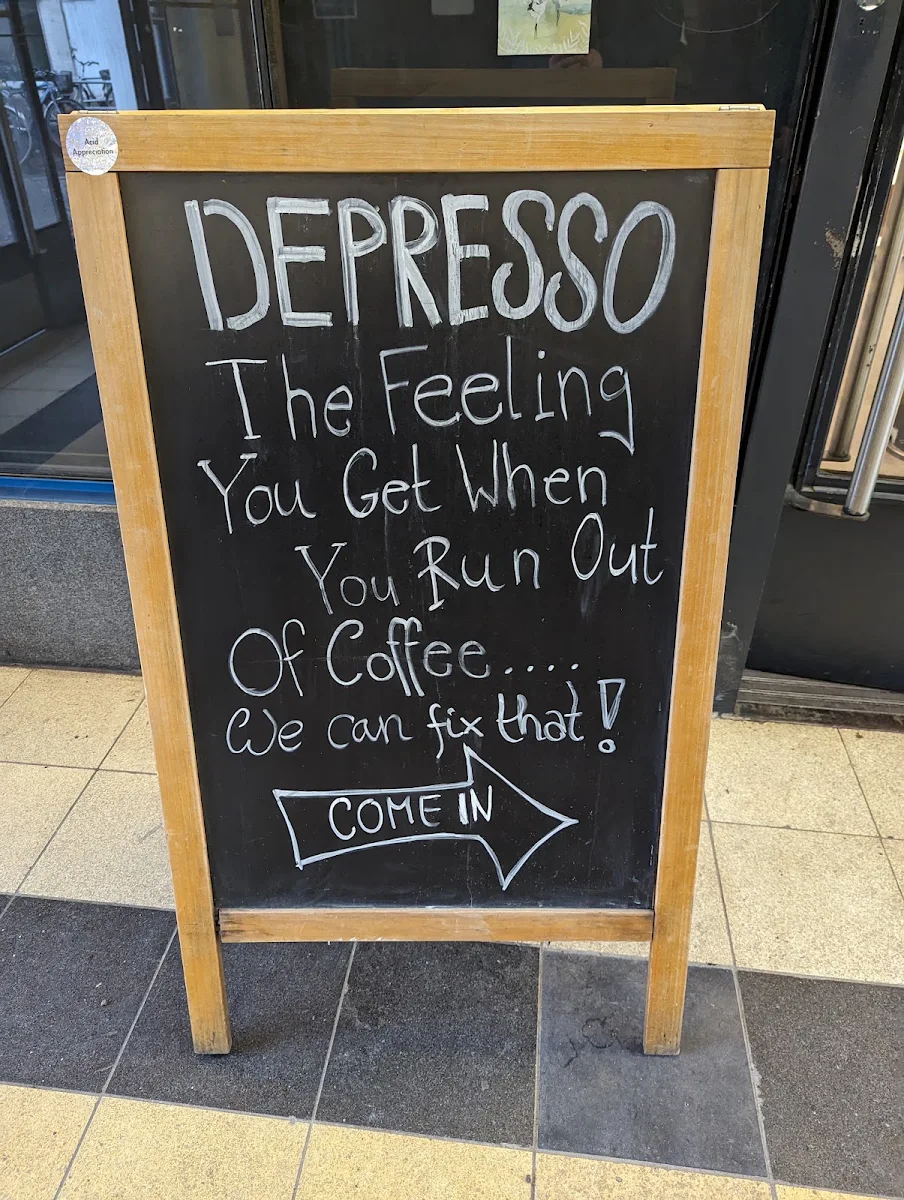 Acid
Appreciation
DEPRESSO
The Feeling
You Get When
You Run Out
Of Coffee....
We can fix that!
COME IN